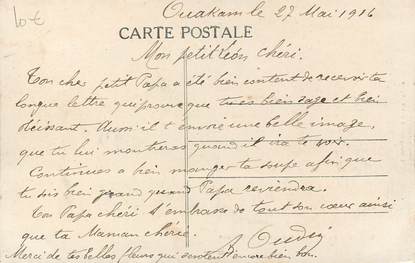 10 €
Ouakam le 27 Mai 1916
CARTE POSTALE
Mon petit Léon chéri.
Ton cher petit Papa a été bien content de recevoir ta
longue lettre qui prouve que tu es bien sage et bien
obéissant. Aussi il t'envoie une belle image,
que tu lui montreras quand il ira te voir.
Continues a bien manger ta soupe afin que
tu sois bien grand quand Papa reviendra.
Ton Papa chéri t'embrasse de tout son cœur ainsi
que ta Maman chérie.
Merci de tes belles fleurs qui sentent encore bien bon.